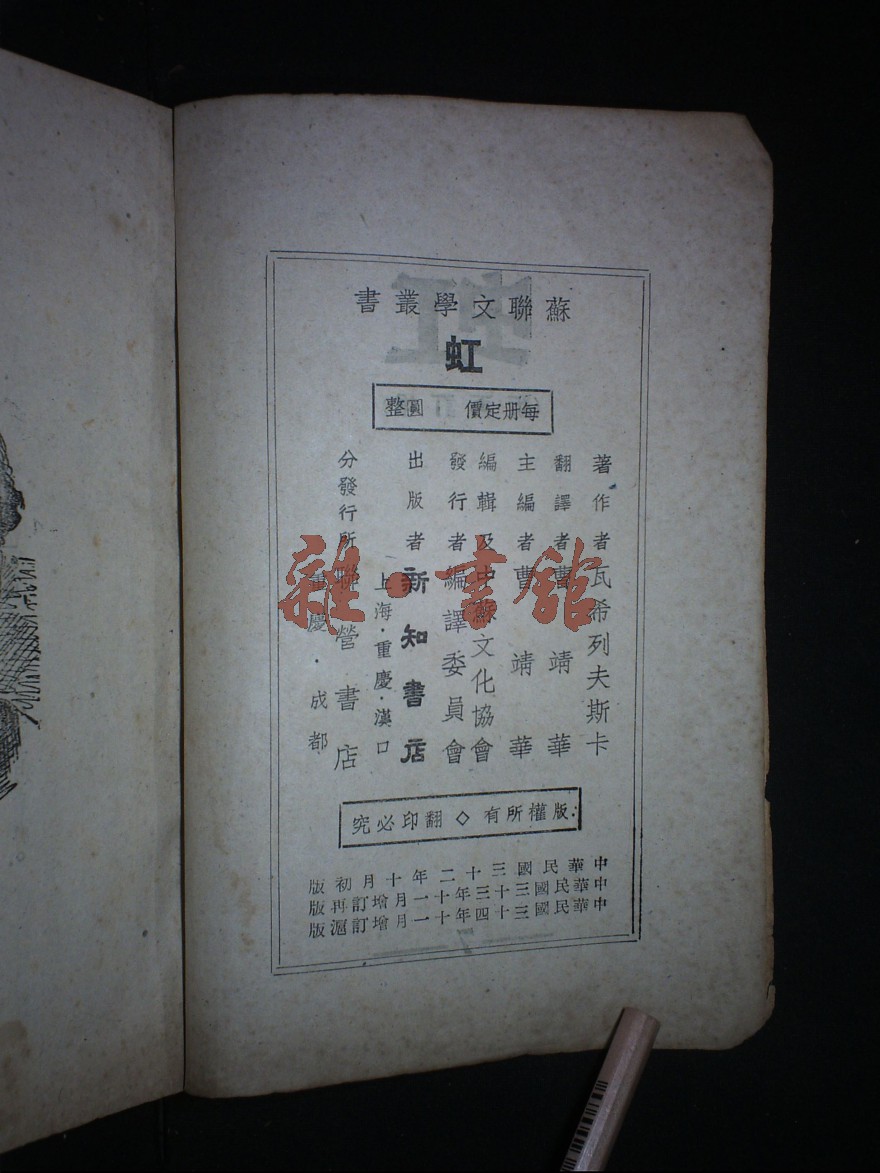 蘇聯文學叢書
虹
每册定價　圓整
著作者　瓦希列夫斯卡
翻譯者　曹靖華
主編者　曹靖華
編輯及發行者　中蘇文化協會編譯委員會
出版者　新知書店
上海·重慶·漢口
分發行所　聯營書店
重慶　成都
版權所有◇翻印必究
中華民國三十二年十月初版
中華民國三十三年十一月增訂再版
中華民國三十四年十一月增訂滬版
雜·書館